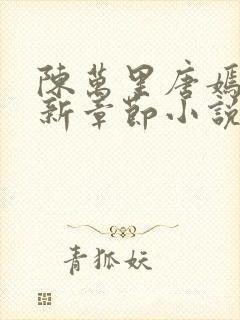 陳萬里唐嫣
新章節小說
青狐妖